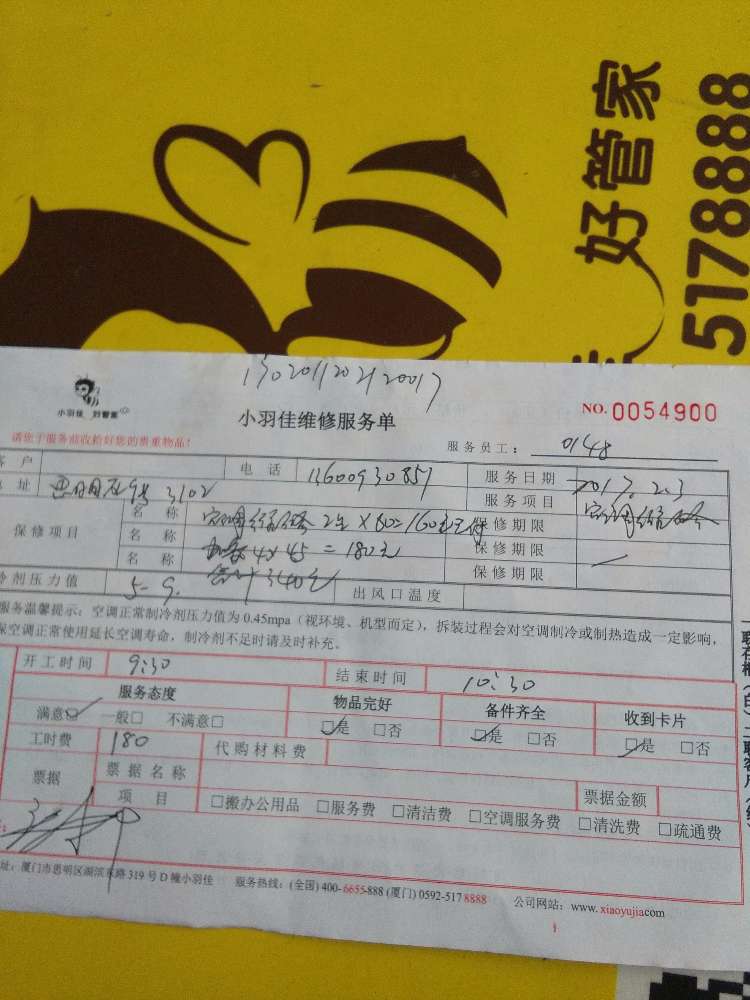 好管家
5178888
1302011202120017
小羽佳 好管家
小羽佳维修服务单
NO.0054900
请您于服务前收拾好您的贵重物品!
服务员工: 0148
客户 电话 13600930851 服务日期 2017.2.3
地址 3102 服务项目 空调
保修项目 名称 空调 2台×80=160元 保修期限
名称 4×45=180元 保修期限
名称 合计340元 保修期限
冷剂压力值 5-9. 出风口温度
服务温馨提示:空调正常制冷剂压力值为0.45mpa(视环境、机型而定),拆装过程会对空调制冷或制热造成一定影响,
保空调正常使用延长空调寿命,制冷剂不足时请及时补充。
开工时间 9:30 结束时间 10:30
服务态度 物品完好 备件齐全 收到卡片
满意☑ 一般□ 不满意□ ☑是 □否 ☑是 □否 ☑是 □否
工时费 180 代购材料费
票据 票据名称 票据金额
项目 □搬办公用品 □服务费 □清洁费 □空调服务费 □清洗费 □疏通费
址:厦门市思明区湖滨东路319号D幢小羽佳 服务热线:(全国)400-6655-888 (厦门)0592-5178888 公司网站:www.xiaoyujia.com